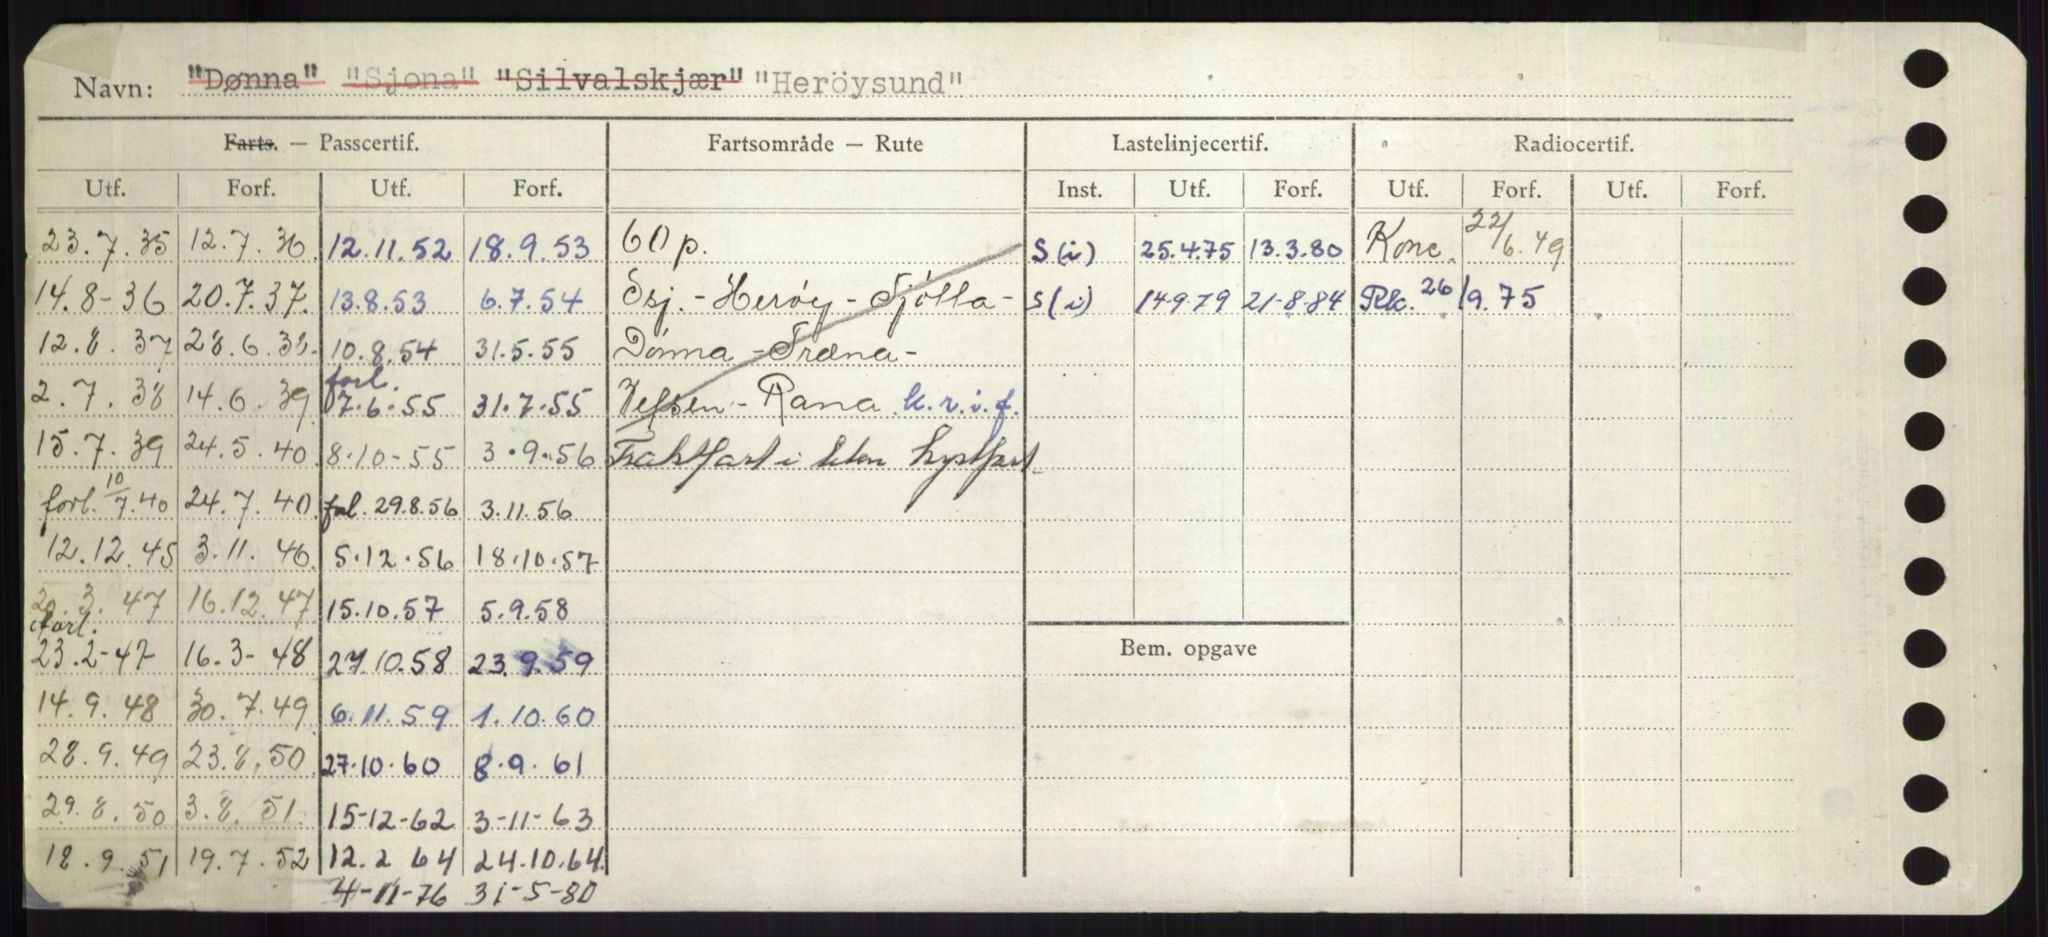 Navn: "Dønna" "Sjona" "Silvalskjær" "Heröysund"
Farts. — Passcertif. Fartsområde — Rute Lastelinjecertif. Radiocertif.
Utf. Forf. Utf. Forf. Inst. Utf. Forf. Utf. Forf. Utf. Forf.
23.7.35 12.7.36 12.11.52 18.9.53 60 p. S(i) 25.4.75 13.3.80 Konc. 22/6.49
14.8-36 20.7.37. 13.8.53 6.7.54 Ssj. - Herøy - Sjölla - S(i) 14.9.79 21-8-84 Rk. 26/9.75
12.8.37 28.6.38. 10.8.54 31.5.55 Dönna - Træna -
2.7.38 14.6.39 forl. 7.6.55 31.7.55 Vefsen - Rana k.r.i.f.
15.7.39 24.5.40 8.10-55 3.9.56 Fraktfart i liten kystfart
forl. 10/7.40 24.7.40 fol. 29.8.56 3.11.56
12.12.45 3.11.46 5.12.56 18.10.57
20.3.47 16.12.47 15.10.57 5.9.58
forl.
23.2-47 16.3-48 27.10.58 23.9.59 Bem. opgave
14.9.48 30.7.49 6.11.59 1.10.60
28.9.49 23.8.50 27.10.60 8.9.61
29.8.50 3.8.51. 15-12-62 3-11-63
18.9.51 19.7.52 12.2 64 24.10.64.
4-11-76 31-5-80